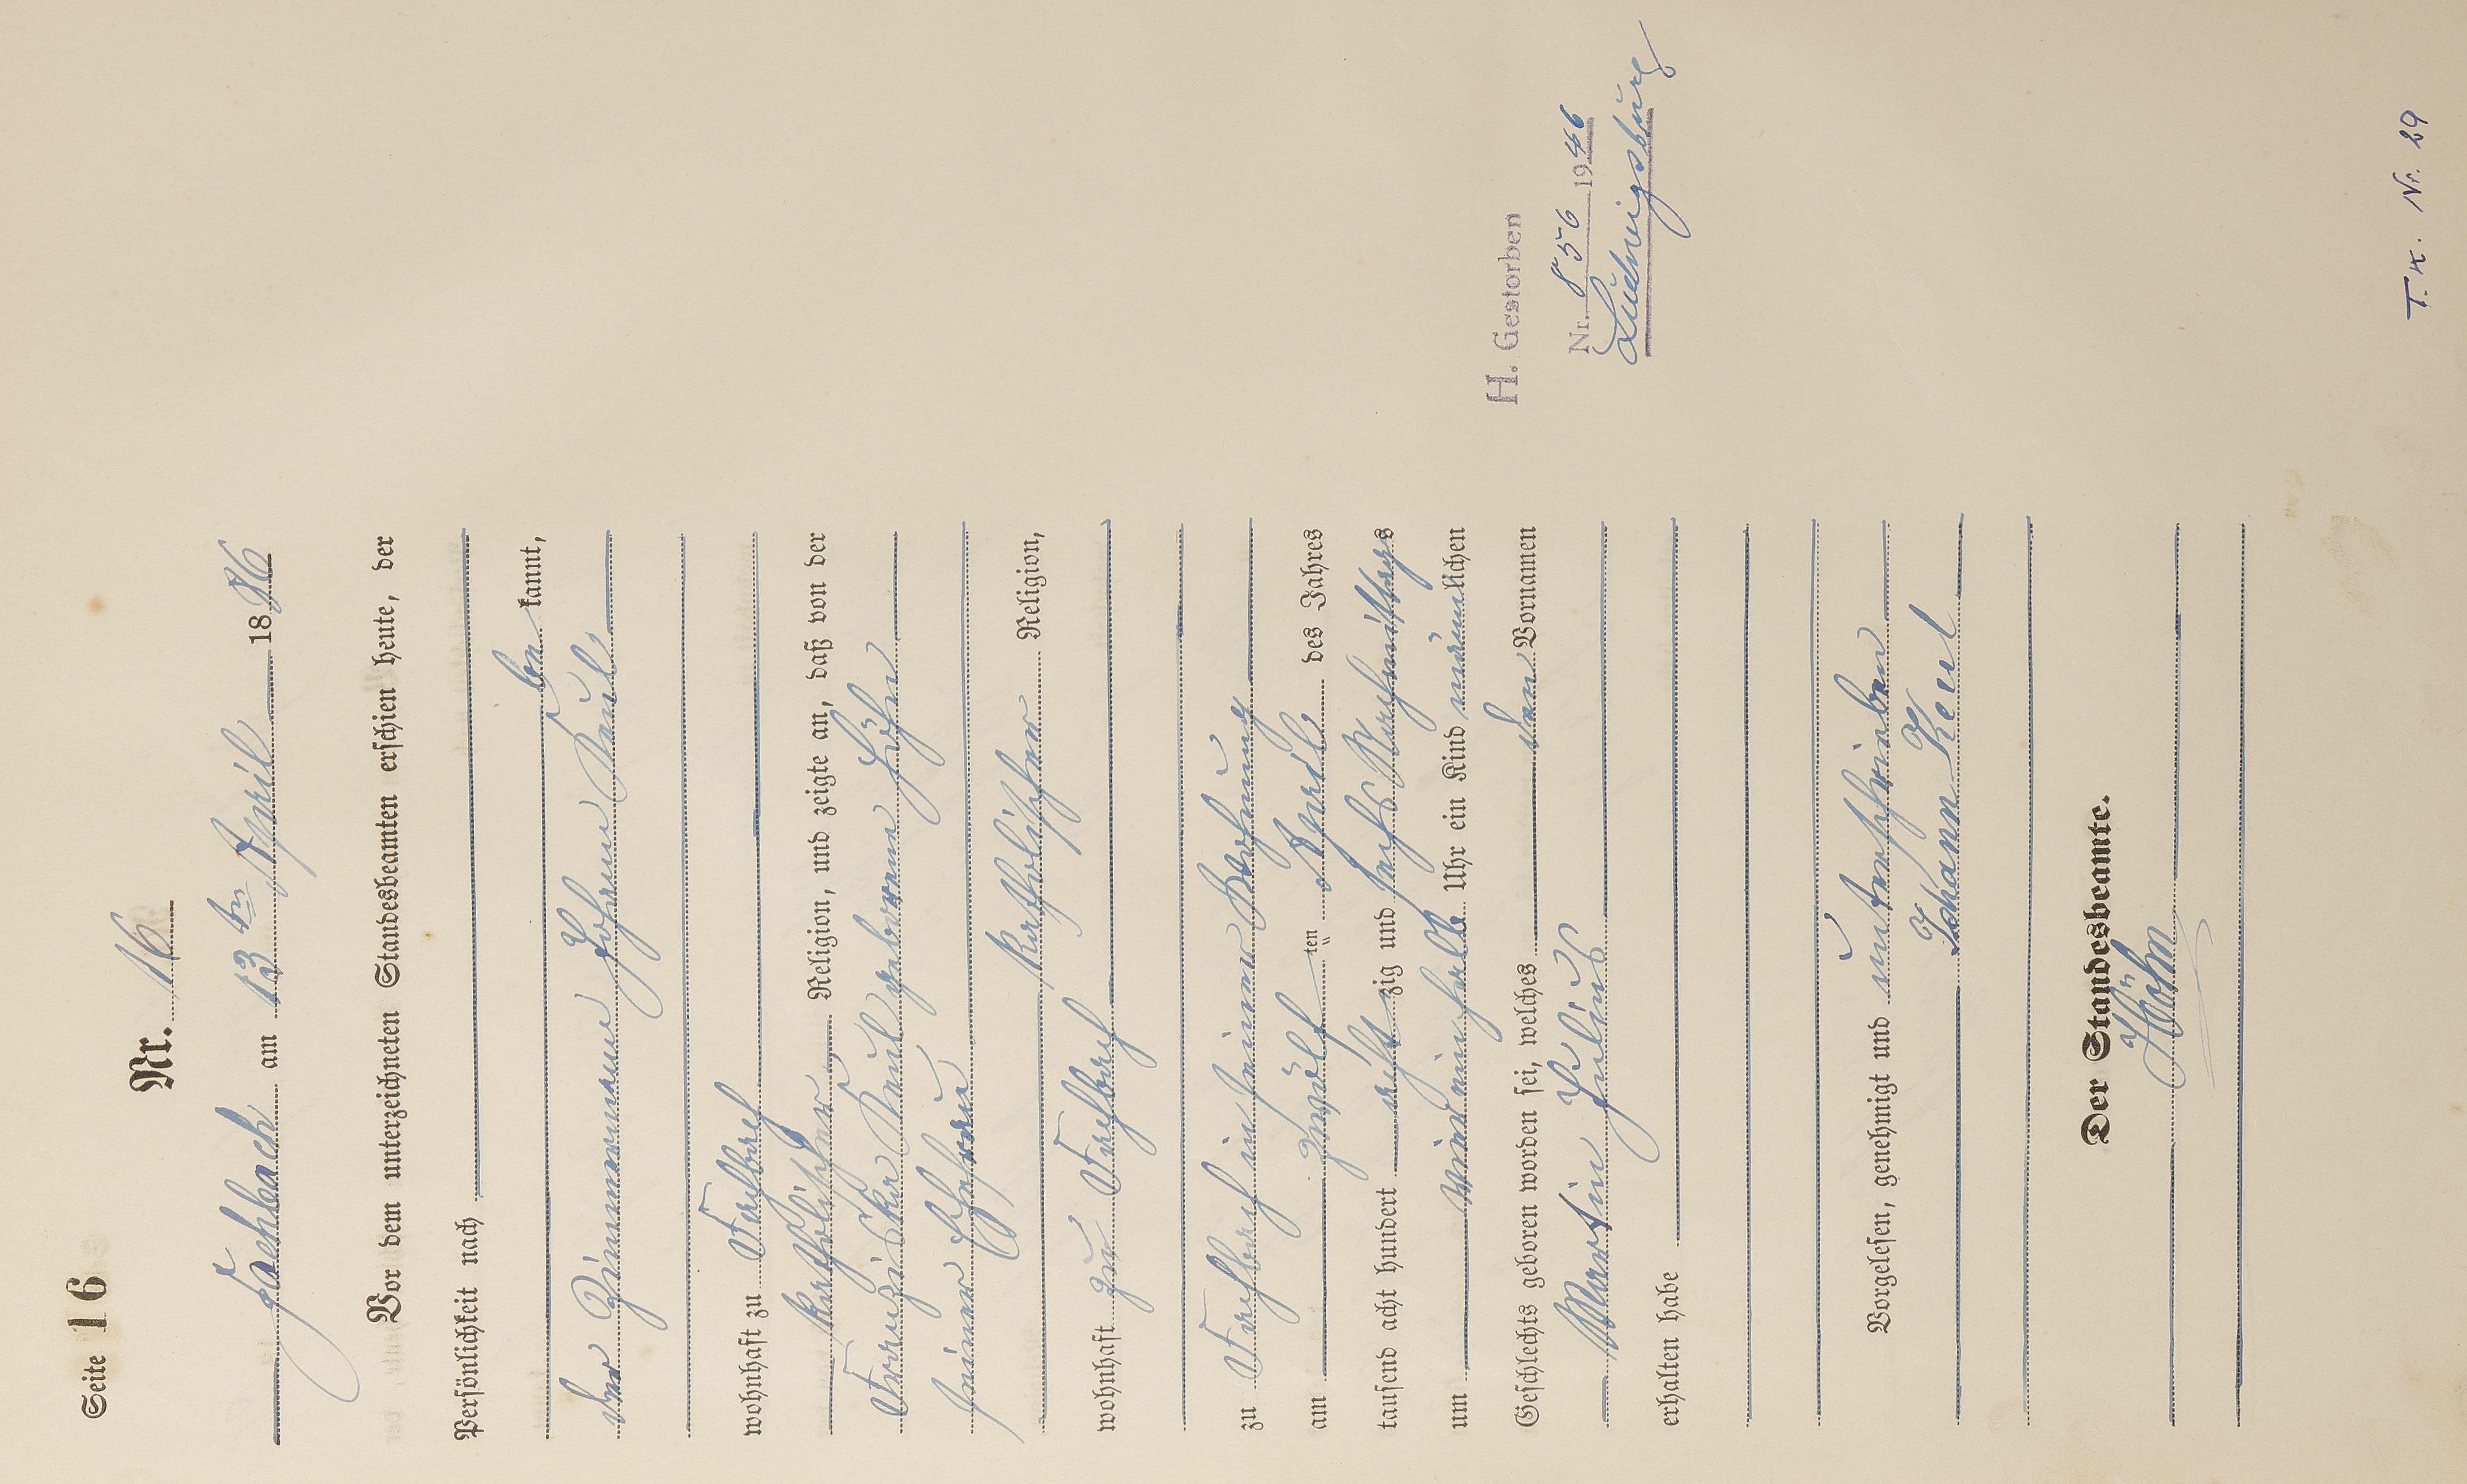 Seite 16
Nr. 16
Fachbach am 13ten April 1886
Vor dem unterzeichneten Standesbeamten erschien heute, der
Persönlichkeit nach
be kannt,
der Zimmermann Johann Keul
wohnhaft zu Fachbach
katholischer Religion, und zeigte an, daß von der
Franziska Keul geborene Höhn
seiner Ehefrau
katholischer Religion,
wohnhaft zu Fachbach
zu Fachbach in seiner Wohnung
am zwölf ten April des Jahres
tausend acht hundert acht zig und sechs Nachmittags
um ein halb Uhr ein Kind männlichen
Geschlechts geboren worden sei, welches den Vornamen
Martin Julius
erhalten habe
Vorgelesen, genehmigt und unterschrieben
Johann Keul
Der Standesbeamte.
Höhn
H. Gestorben
Nr. 856 1946
Ludwigsburg
T. K. Nr. 29